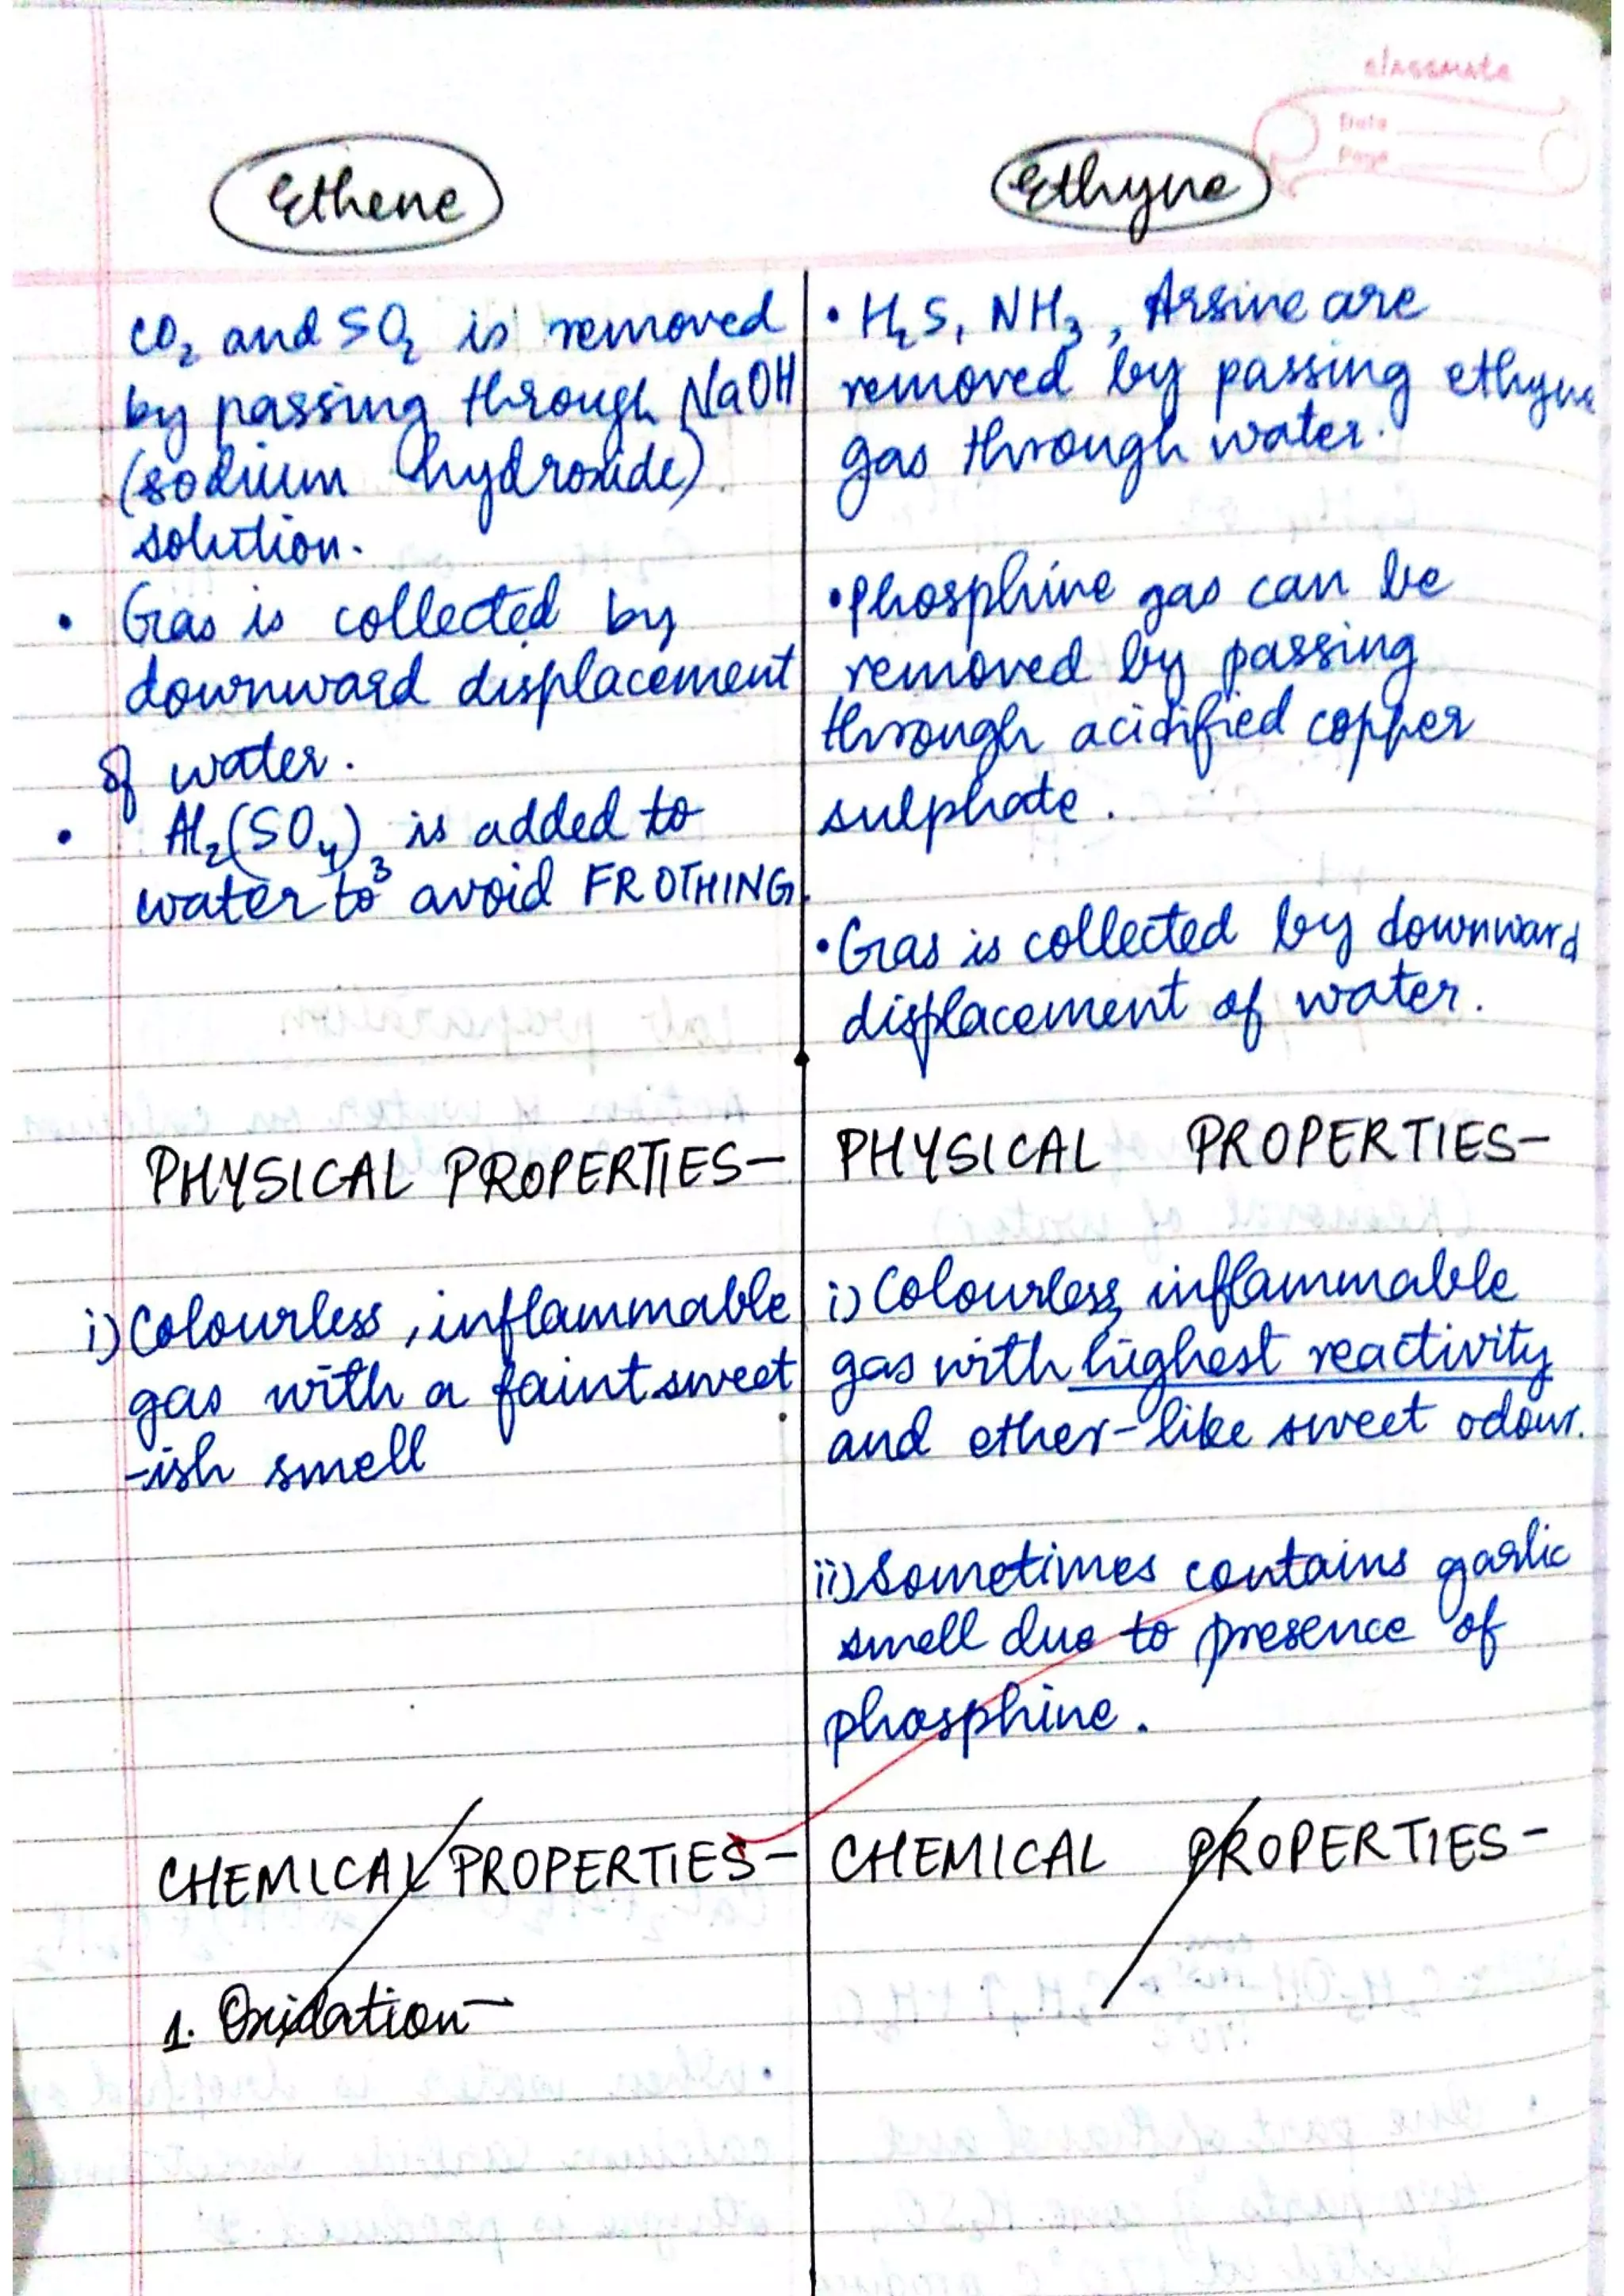 classmate
Date
Page
Ethene
CO2 and SO2 is removed
by passing through NaOH
(sodium hydroxide)
solution.
• Gas is collected by
downward displacement
of water.
• Al2(SO4)3 is added to
water to avoid FROTHING.
PHYSICAL PROPERTIES-
i) Colourless, inflammable
gas with a faint sweet
-ish smell
CHEMICAL PROPERTIES-
1. Oxidation-
Ethyne
• H2S, NH3, Arsine are
removed by passing ethyne
gas through water.
• Phosphine gas can be
removed by passing
through acidified copper
sulphate.
• Gas is collected by downward
displacement of water.
PHYSICAL PROPERTIES-
i) Colourless, inflammable
gas with highest reactivity
and ether-like sweet odour.
ii) Sometimes contains garlic
smell due to presence of
phosphine.
CHEMICAL PROPERTIES-